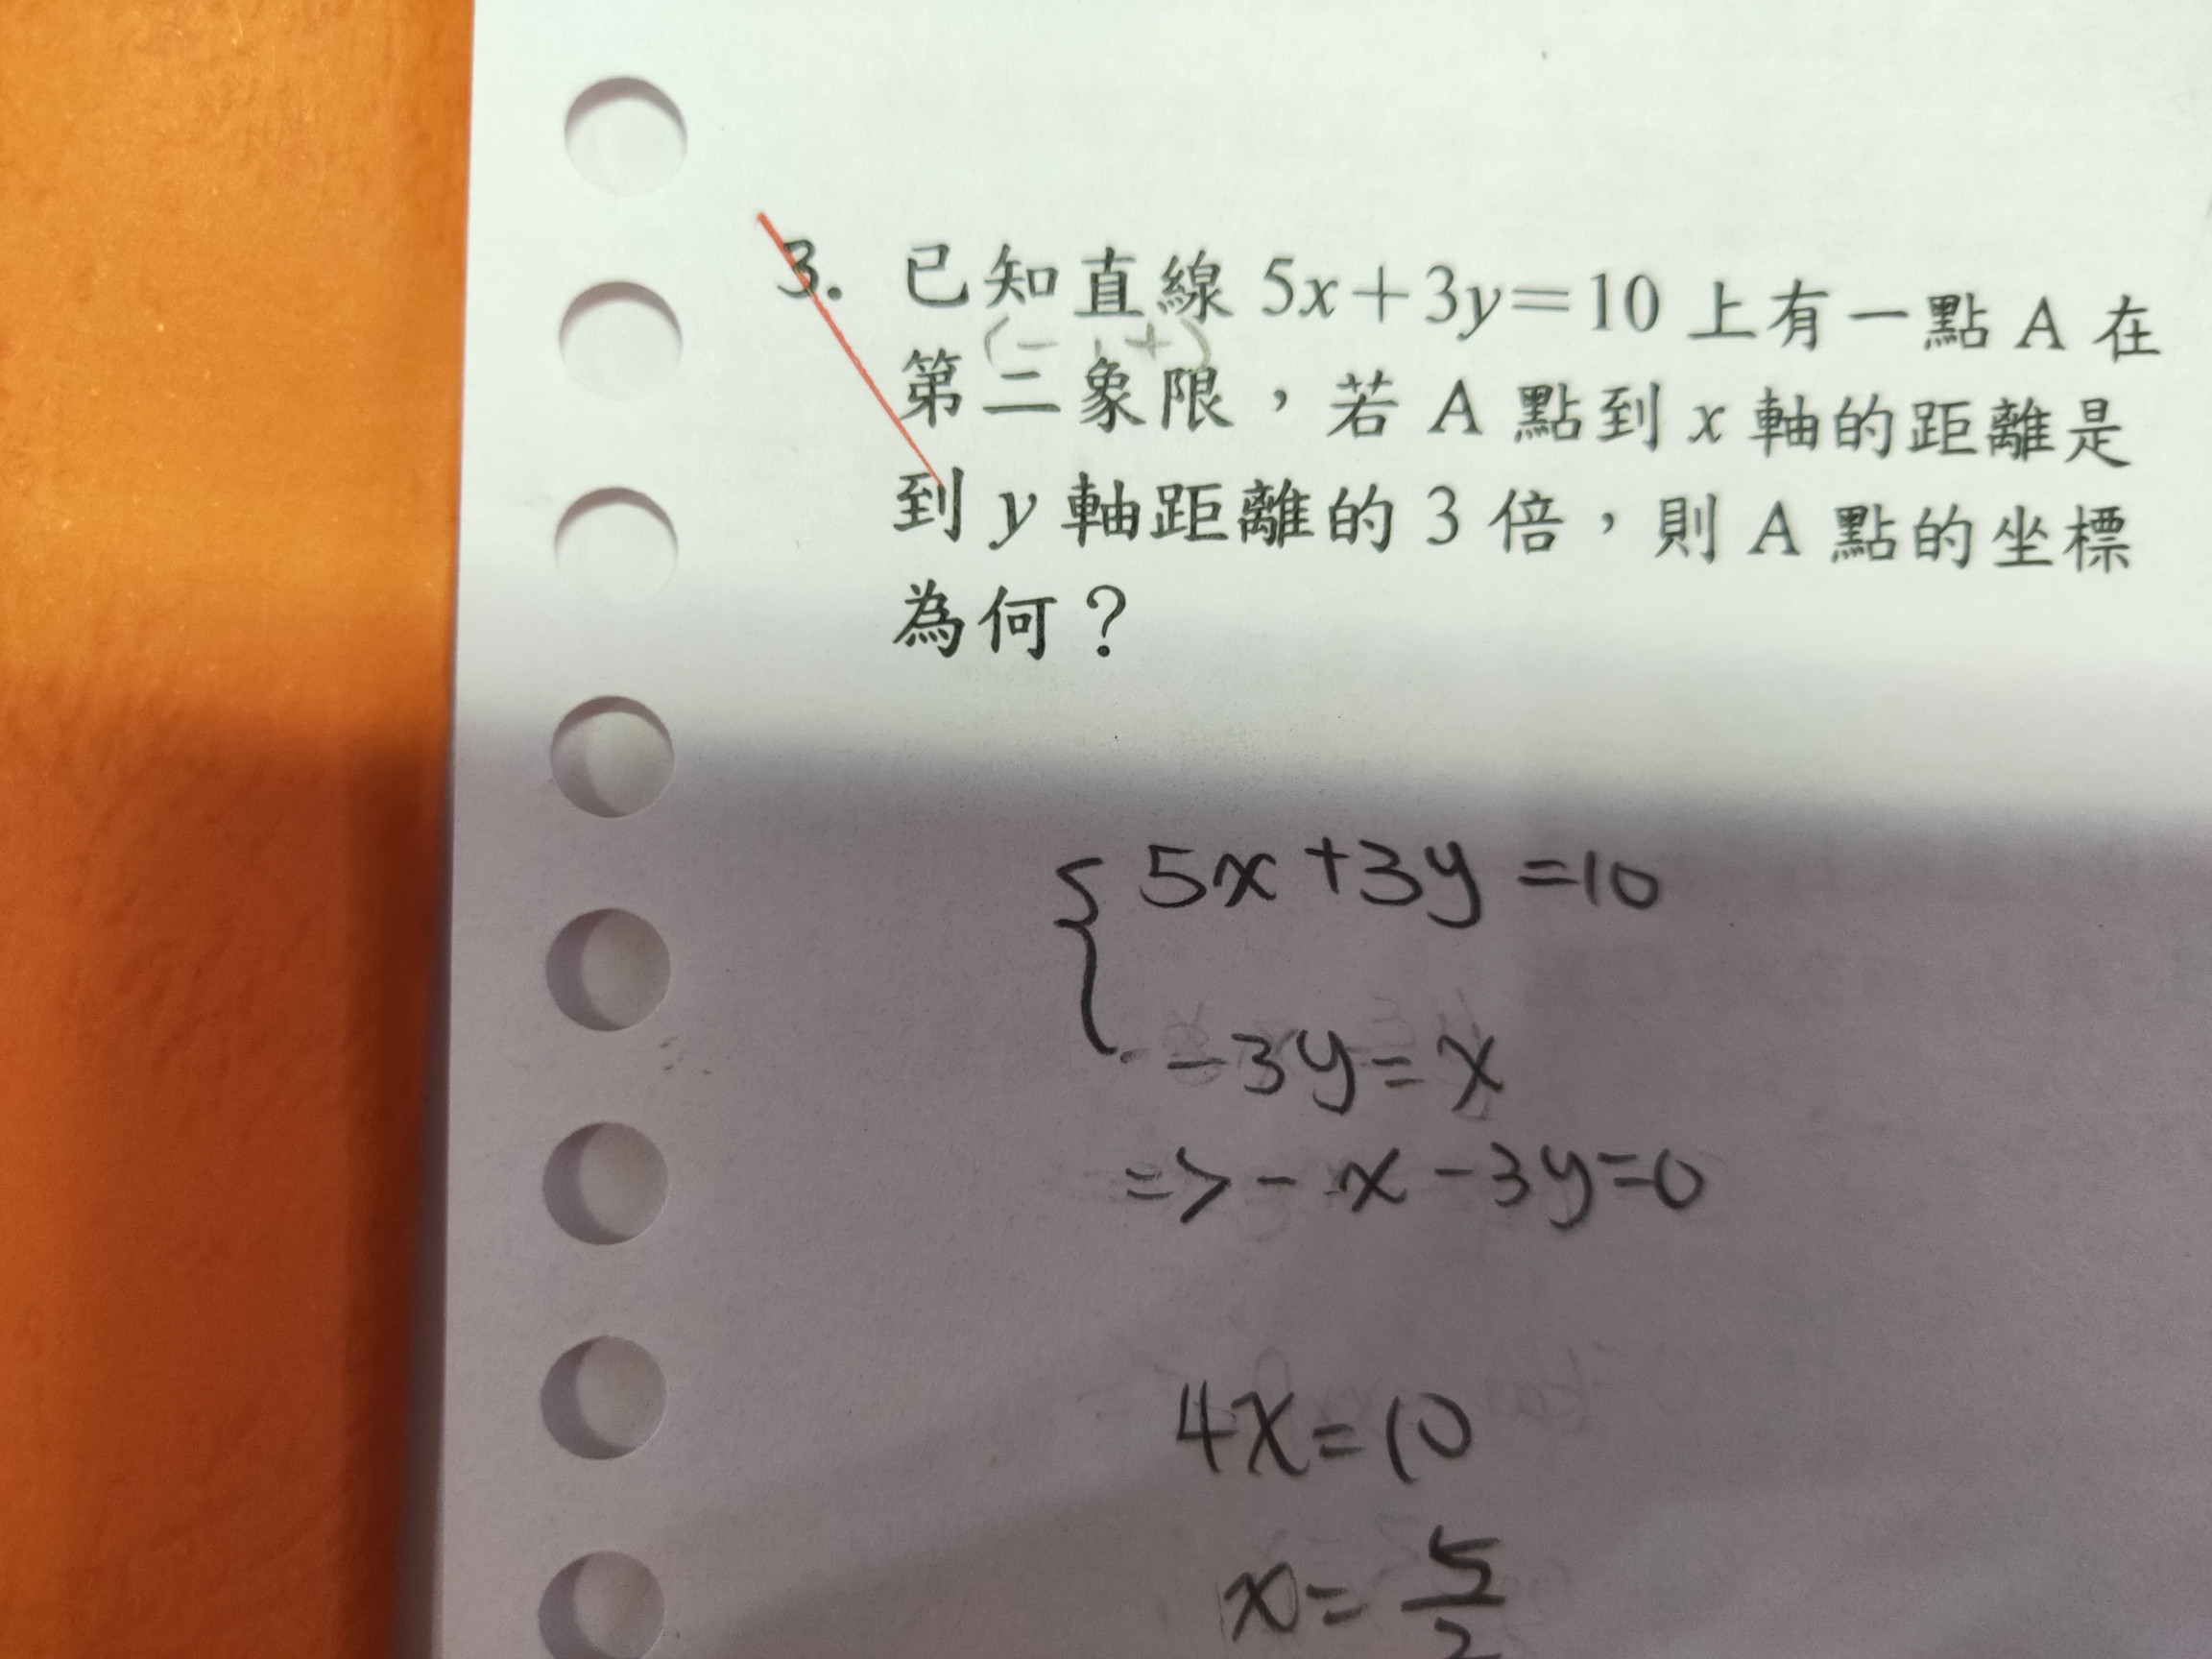 3. 已知直線 5x+3y=10 上有一點 A 在
(-,+)
第二象限，若 A 點到 x 軸的距離是
到 y 軸距離的 3 倍，則 A 點的坐標
為何？
5x+3y=10
-3y=x
=>-x-3y=0
4x=10
x=5/2